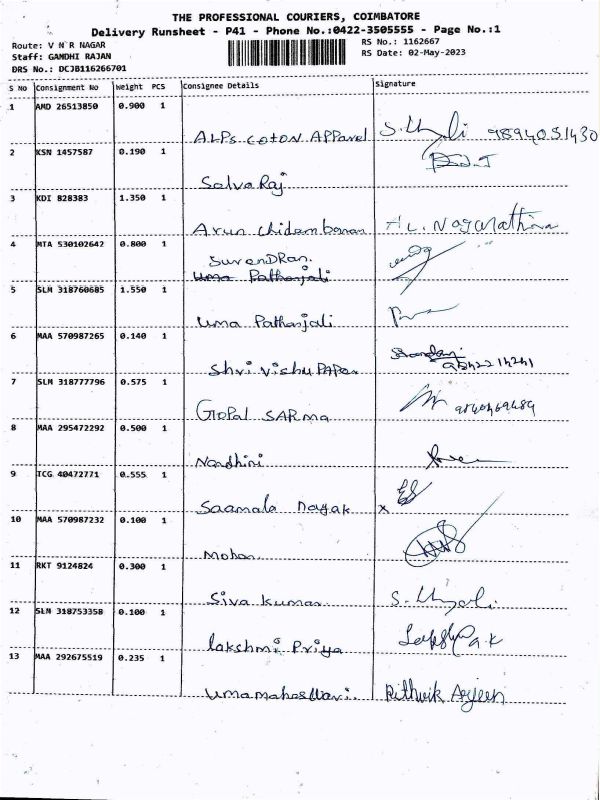 THE PROFESSIONAL COURIERS, COIMBATORE
Delivery Runsheet - P41 - Phone No.:0422-3505555 - Page No.:1
Route: V N R NAGAR
Staff: GANDHI RAJAN
DRS No.: DCJB116266701
RS No.: 1162667
RS Date: 02-May-2023
S No Consignment No Weight PCS Consignee Details Signature
1 AMD 26513850 0.900 1
ALPs coton Apparel 9894051430
2 KSN 1457587 0.190 1
Selva Raj
3 KDI 828383 1.350 1
Arun Chidambaram AL. Nagarathina
4 MTA 530102642 0.800 1
SurenDRan.
Uma Pathanjali
5 SLM 318760685 1.550 1
Uma Pathanjali
6 MAA 570987265 0.140 1
Shri Vishu Paper
7 SLM 318777796 0.575 1
Gopal SARma
8 MAA 295472292 0.500 1
Nandhini
9 TCG 40472771 0.555 1
Saamala nayak x
10 MAA 570987232 0.100 1
Mohan
11 RKT 9124824 0.300 1
Siva kumar
12 SLM 318753358 0.100 1
lakshmi Priya
13 MAA 292675519 0.235 1
Umamaheswari. Rithwik Arjeen